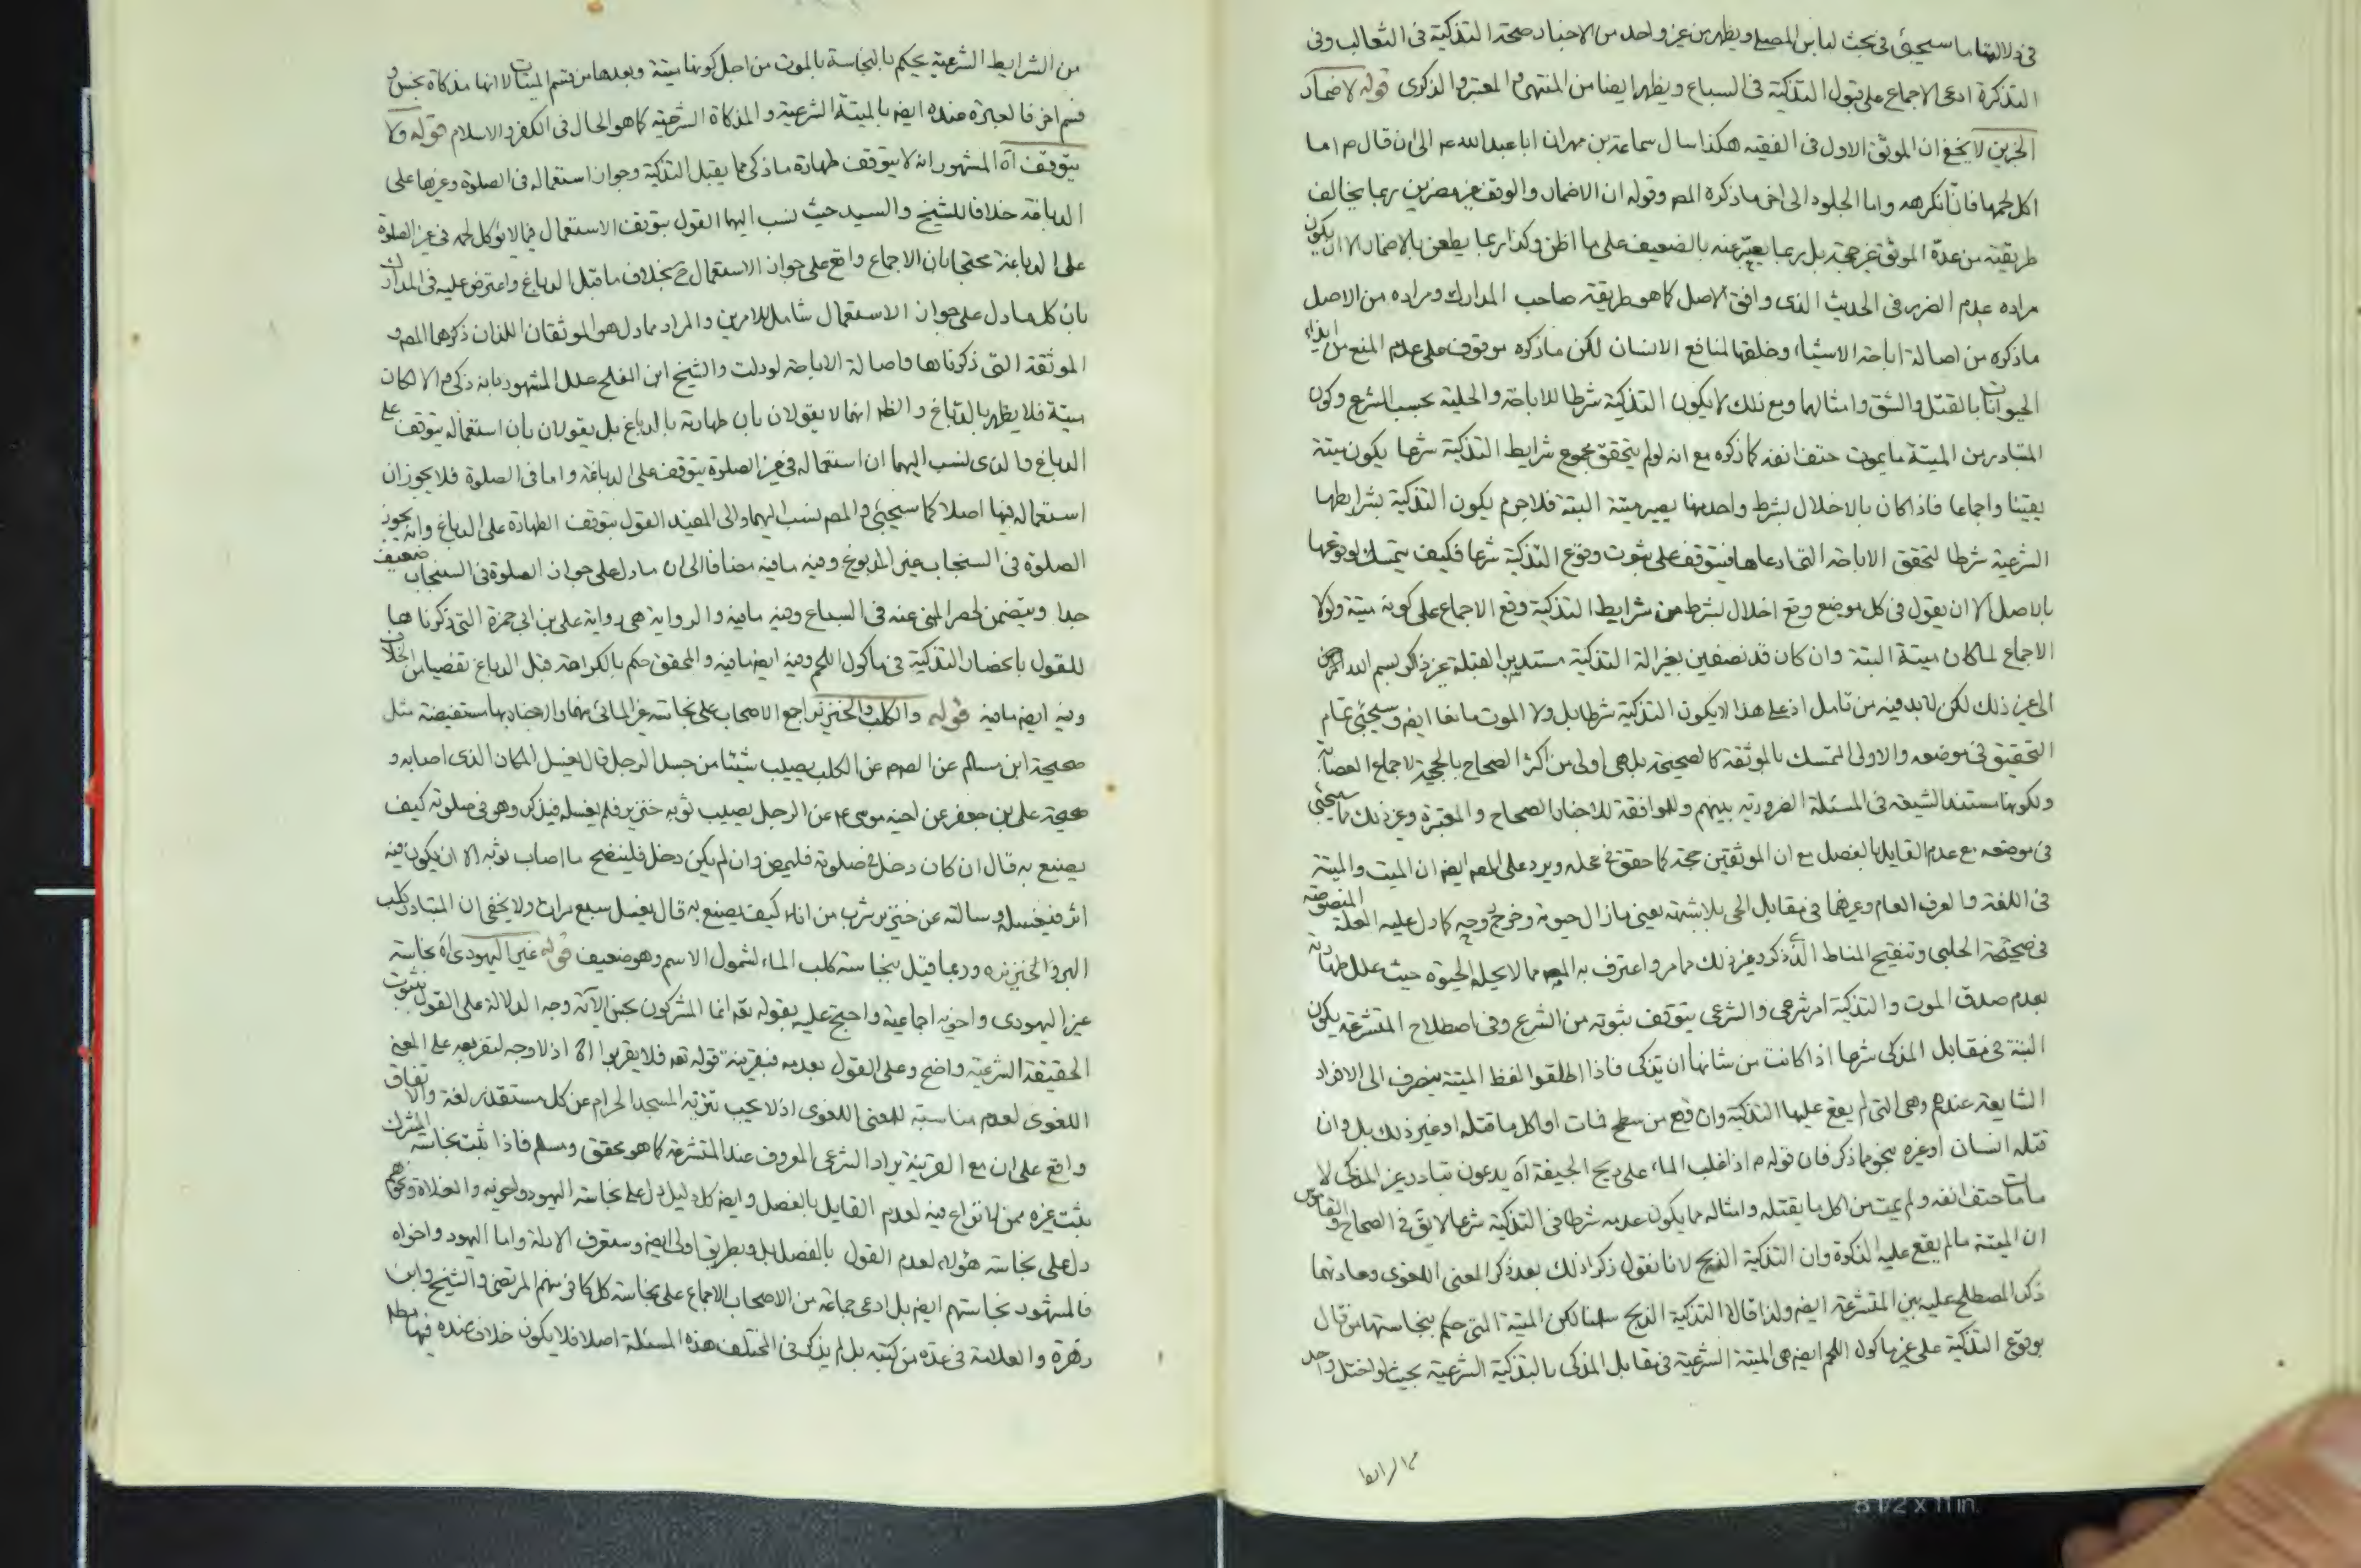 فى دلالتها ما سيجيئ فى بحث لباس المصلى ويظهر من غير واحد من الاخبار صحة التذكية فى الثعالب وفى
التذكرة ادعى الاجماع على قبول التذكية فى السباع ويظهر ايضا من المنتهى والمعتبر والذكرى قوله لاضمار
الخبرين لا يخفى ان الموثق الاول فى الفقيه هكذا سال سماعة بن مهران ابا عبد الله عم الى ان قال م اما
اكل لحمها فانا نكرهه واما الجلود الى اخر ما ذكره المصر وقوله ان الاضمار والوقف غير مضرين ربما يخالف
طريقته من عدة الموثق غير حجة بل ربما يعبر عنه بالضعيف على ما اظن وكذا ربما يطعن بالاضمار الا ان يكون
مراده عدم الضرر فى الحديث الذى وافق الاصل كما هو طريقة صاحب المدارك ومراده من الاصل
ما ذكره من اصالة اباحة الاشياء وخلقها لمنافع الانسان لكن ما ذكره موقوف على عدم المنع من ايذاء
الحيوانات بالقتل والشق وامثالهما ومع ذلك لا يكون التذكية شرطا للاباحة والحلية بحسب الشرع وكون
المتبادر من الميتة ما يموت حتف انفه كما ذكره مع انه لو لم يتحقق مجموع شرايط التذكية شرعا يكون ميتة
يقينا واجماعا فاذا كان بالاخلال بشرط واحد منها يصير ميتة البتة فلا جرم يكون التذكية بشرايطها
الشرعية شرطا لتحقق الاباحة التى ادعاها فيتوقف على ثبوت وقوع التذكية شرعا فكيف يتمسك لوقوعها
بالاصل الا ان يقول فى كل موضع وقع اخلال بشرط من شرايط التذكية وقع الاجماع على كونه ميتة ولولا
الاجماع لما كان ميتة البتة وان كان قد نصفين بغير الة التذكية مستدبر القبلة غير ذاكر بسم الله الرحمن
الى غير ذلك لكن لا بد فيه من تامل اذ على هذا لا يكون التذكية شرطا بل ولا الموت مانعا ايضر وسيجئ تمام
التحقيق فى موضعه والاولى التمسك بالموثقة كالصحيحة بل هى اولى من اكثر الصحاح بالحجية لاجماع العصابة
ولكونها مستند الشيعة فى المسئلة الضرورية بينهم وللموافقة للاخبار الصحاح والمعتبرة وغير ذلك مما سيجئ
فى موضعه مع عدم القايل بالفصل مع ان الموثقين حجة كما حقق فى محله ويرد على المصر ايضر ان الميت والميتة
فى اللغة والعرف العام وغيرهما فى مقابل الحى بلا شبهة يعنى ما زال حيوته وخرج روحه كما دل عليه العلة المنصوصة
فى صحيحة الحلبى وتنقيح المناط الذى ذكر وغير ذلك مما مر واعترف به المصر مما لا يحله الحيوة حيث علل طهارته
بعدم صدق الموت والتذكية امر شرعى والشرعى يتوقف ثبوته من الشرع وفى اصطلاح المتشرعة يكون
البتة فى مقابل المذكى شرعا اذا كانت من شانها ان يذكى فاذا اطلقوا لفظ الميتة ينصرف الى الافراد
الشايعة عندهم وهى التى لم يقع عليها التذكية وان وقع من سطح فمات او اكل ما قتله او غير ذلك بل وان
قتله انسان او غيره بنحو ما ذكر فان قوله م اذا غلب الماء على ريح الجيفة آه يدعون تبادر غير المذكى لا
ما مات حتف انفه ولم يمت من اكل ما يقتله وامثاله مما يكون عدمه شرطا فى التذكية شرعا لا يق فى الصحاح والقاموس
ان الميتة ما لم يقع عليه الذكوة وان التذكية الذبح لانا نقول ذكر ذلك بعد ذكر المعنى اللغوى وعادتهما
ذكر المصطلح عليه بين المتشرعة ايضر ولذا قالا التذكية الذبح سلمنا لكن الميتة التى حكم بنجاستها من قال
بوقوع التذكية على غير ماكول اللحم ايضر هى الميتة الشرعية فى مقابل المذكى بالتذكية الشرعية بحيث لو اختل واحد
من الشرايط
من الشرايط الشرعية يحكم بالنجاسة بالموت من اجل كونها ميتة وبعدها من قسم الميتات لا انها مذكاة نجس و
قسم اخر فالعبرة عنده ايضر بالميتة الشرعية والمذكاة الشرعية كما هو الحال فى الكفر والاسلام قوله ولا
يتوقف آه المشهور انه لا يتوقف طهارة ما ذكى مما يقبل التذكية وجواز استعماله فى الصلوة وغيرها على
الدباغة خلافا للشيخ والسيد حيث نسب اليهما القول بتوقف الاستعمال فيما لا يؤكل لحمه فى غير الصلوة
على الدباغة محتجا بان الاجماع واقع على جواز الاستعمال ح بخلاف ما قبل الدباغ واعترض عليه فى المدارك
بان كل ما دل على جواز الاستعمال شامل للامرين والمراد مما دل هو الموثقان اللذان ذكرهما المصر و
الموثقة التى ذكرناها واصالة الاباحة لو دلت والشيخ ابن المفلح علل المشهور بانه ذكى والا لكان
ميتة فلا يطهر بالدباغ والظر انهما لا يقولان بان طهارته بالدباغ بل يقولان بان استعماله يتوقف على
الدباغ والذى نسب اليهما ان استعماله فى غير الصلوة يتوقف على الدباغة واما فى الصلوة فلا يجوزان
استعماله فيها اصلا كما سيجئ والمصر نسب اليهما والى المفيد القول بتوقف الطهارة على الدباغ وانه يجوز
الصلوة فى السنجاب غير المدبوغ وفيه ما فيه مضافا الى ان ما دل على جواز الصلوة فى السنجاب ضعيف
جدا ويتضمن لحصر المنهى عنه فى السباع وفيه ما فيه والرواية هى رواية على بن ابى حمزة التى ذكرناها
للقول بانحصار التذكية فى ماكول اللحم وفيه ايضر ما فيه والمحقق حكم بالكراهة قبل الدباغ تفصيا من الخلاف
وفيه ايضر ما فيه قوله والكلب والخنزير اجمع الاصحاب على نجاسة غير المائى منهما والاخبار بها مستفيضة مثل
صحيحة ابن مسلم عن الصر عن الكلب يصيب شيئا من جسد الرجل قال يغسل المكان الذى اصابه و
صحيحة على بن جعفر عن اخيه موسى عم عن الرجل يصيب ثوبه خنزير فلم يغسله فيذكر وهو فى صلوته كيف
يصنع به قال ان كان دخل فى صلوته فليمض وان لم يكن دخل فلينضح ما اصاب ثوبه الا ان يكون فيه
اثر فيغسله وسالته عن خنزير شرب من اناء كيف يصنع به قال يغسل سبع مرات ولا يخفى ان المتبادر كلب
البر والخنزير بره وربما قيل بنجاسة كلب الماء لشمول الاسم وهو ضعيف قوله غير اليهودى آه نجاسة
غير اليهودى واخويه اجماعية واحتج عليه بقوله تعر انما المشركون نجس الآية وجه الدلالة على القول بثبوت
الحقيقة الشرعية واضح وعلى القول بعدمه فبقرينة قوله تعر فلا يقربوا اه اذ لا وجه لتفريعه على المعنى
اللغوى لعدم مناسبة للمعنى اللغوى اذ لا يجب تنزيه المسجد الحرام عن كل مستقذر لغة والاتفاق
واقع على ان مع القرينة يراد الشرعى المعروف عند المتشرعة كما هو محقق ومسلم فاذا ثبت نجاسة المشرك
يثبت غيره ممن لا نزاع فيه لعدم القايل بالفصل وايضر كل دليل دل على نجاسة اليهود واخويه والغلاة ونحوهم
دل على نجاسة هؤلاء لعدم القول بالفصل بل وبطريق اولى ايضر وستعرف الادلة واما اليهود واخواه
فالمشهور نجاستهم ايضر بل ادعى جماعة من الاصحاب الاجماع على نجاسة كل كافر منهم المرتضى والشيخ وابن
زهرة والعلامة فى عدة من كتبه بل لم يذكر فى المختلف هذه المسئلة اصلا فلا يكون خلاف عنده فيها يظهر